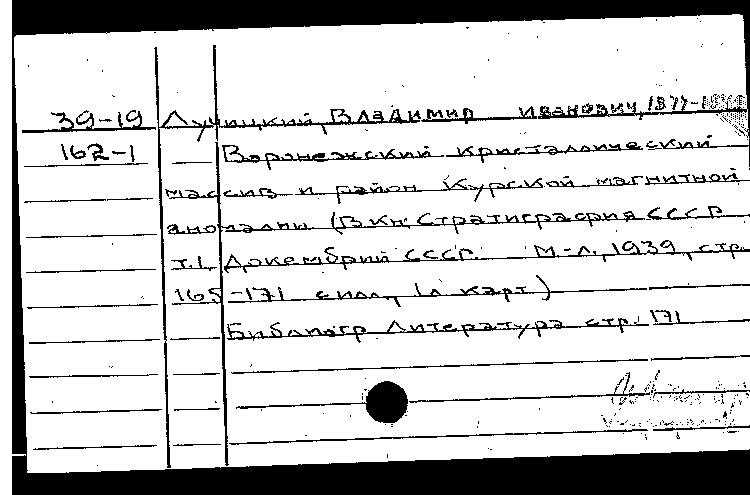 39-19 Лучицкий, Владимир Иванович, 1877-
162-1 Воронежский кристаллический
массив и район Курской магнитной
аномалии (В кн. Стратиграфия СССР
т.1. Докембрий СССР. М.-Л., 1939, стр.
165-171 с илл., (л карт.)
Библиогр Литература стр. 171